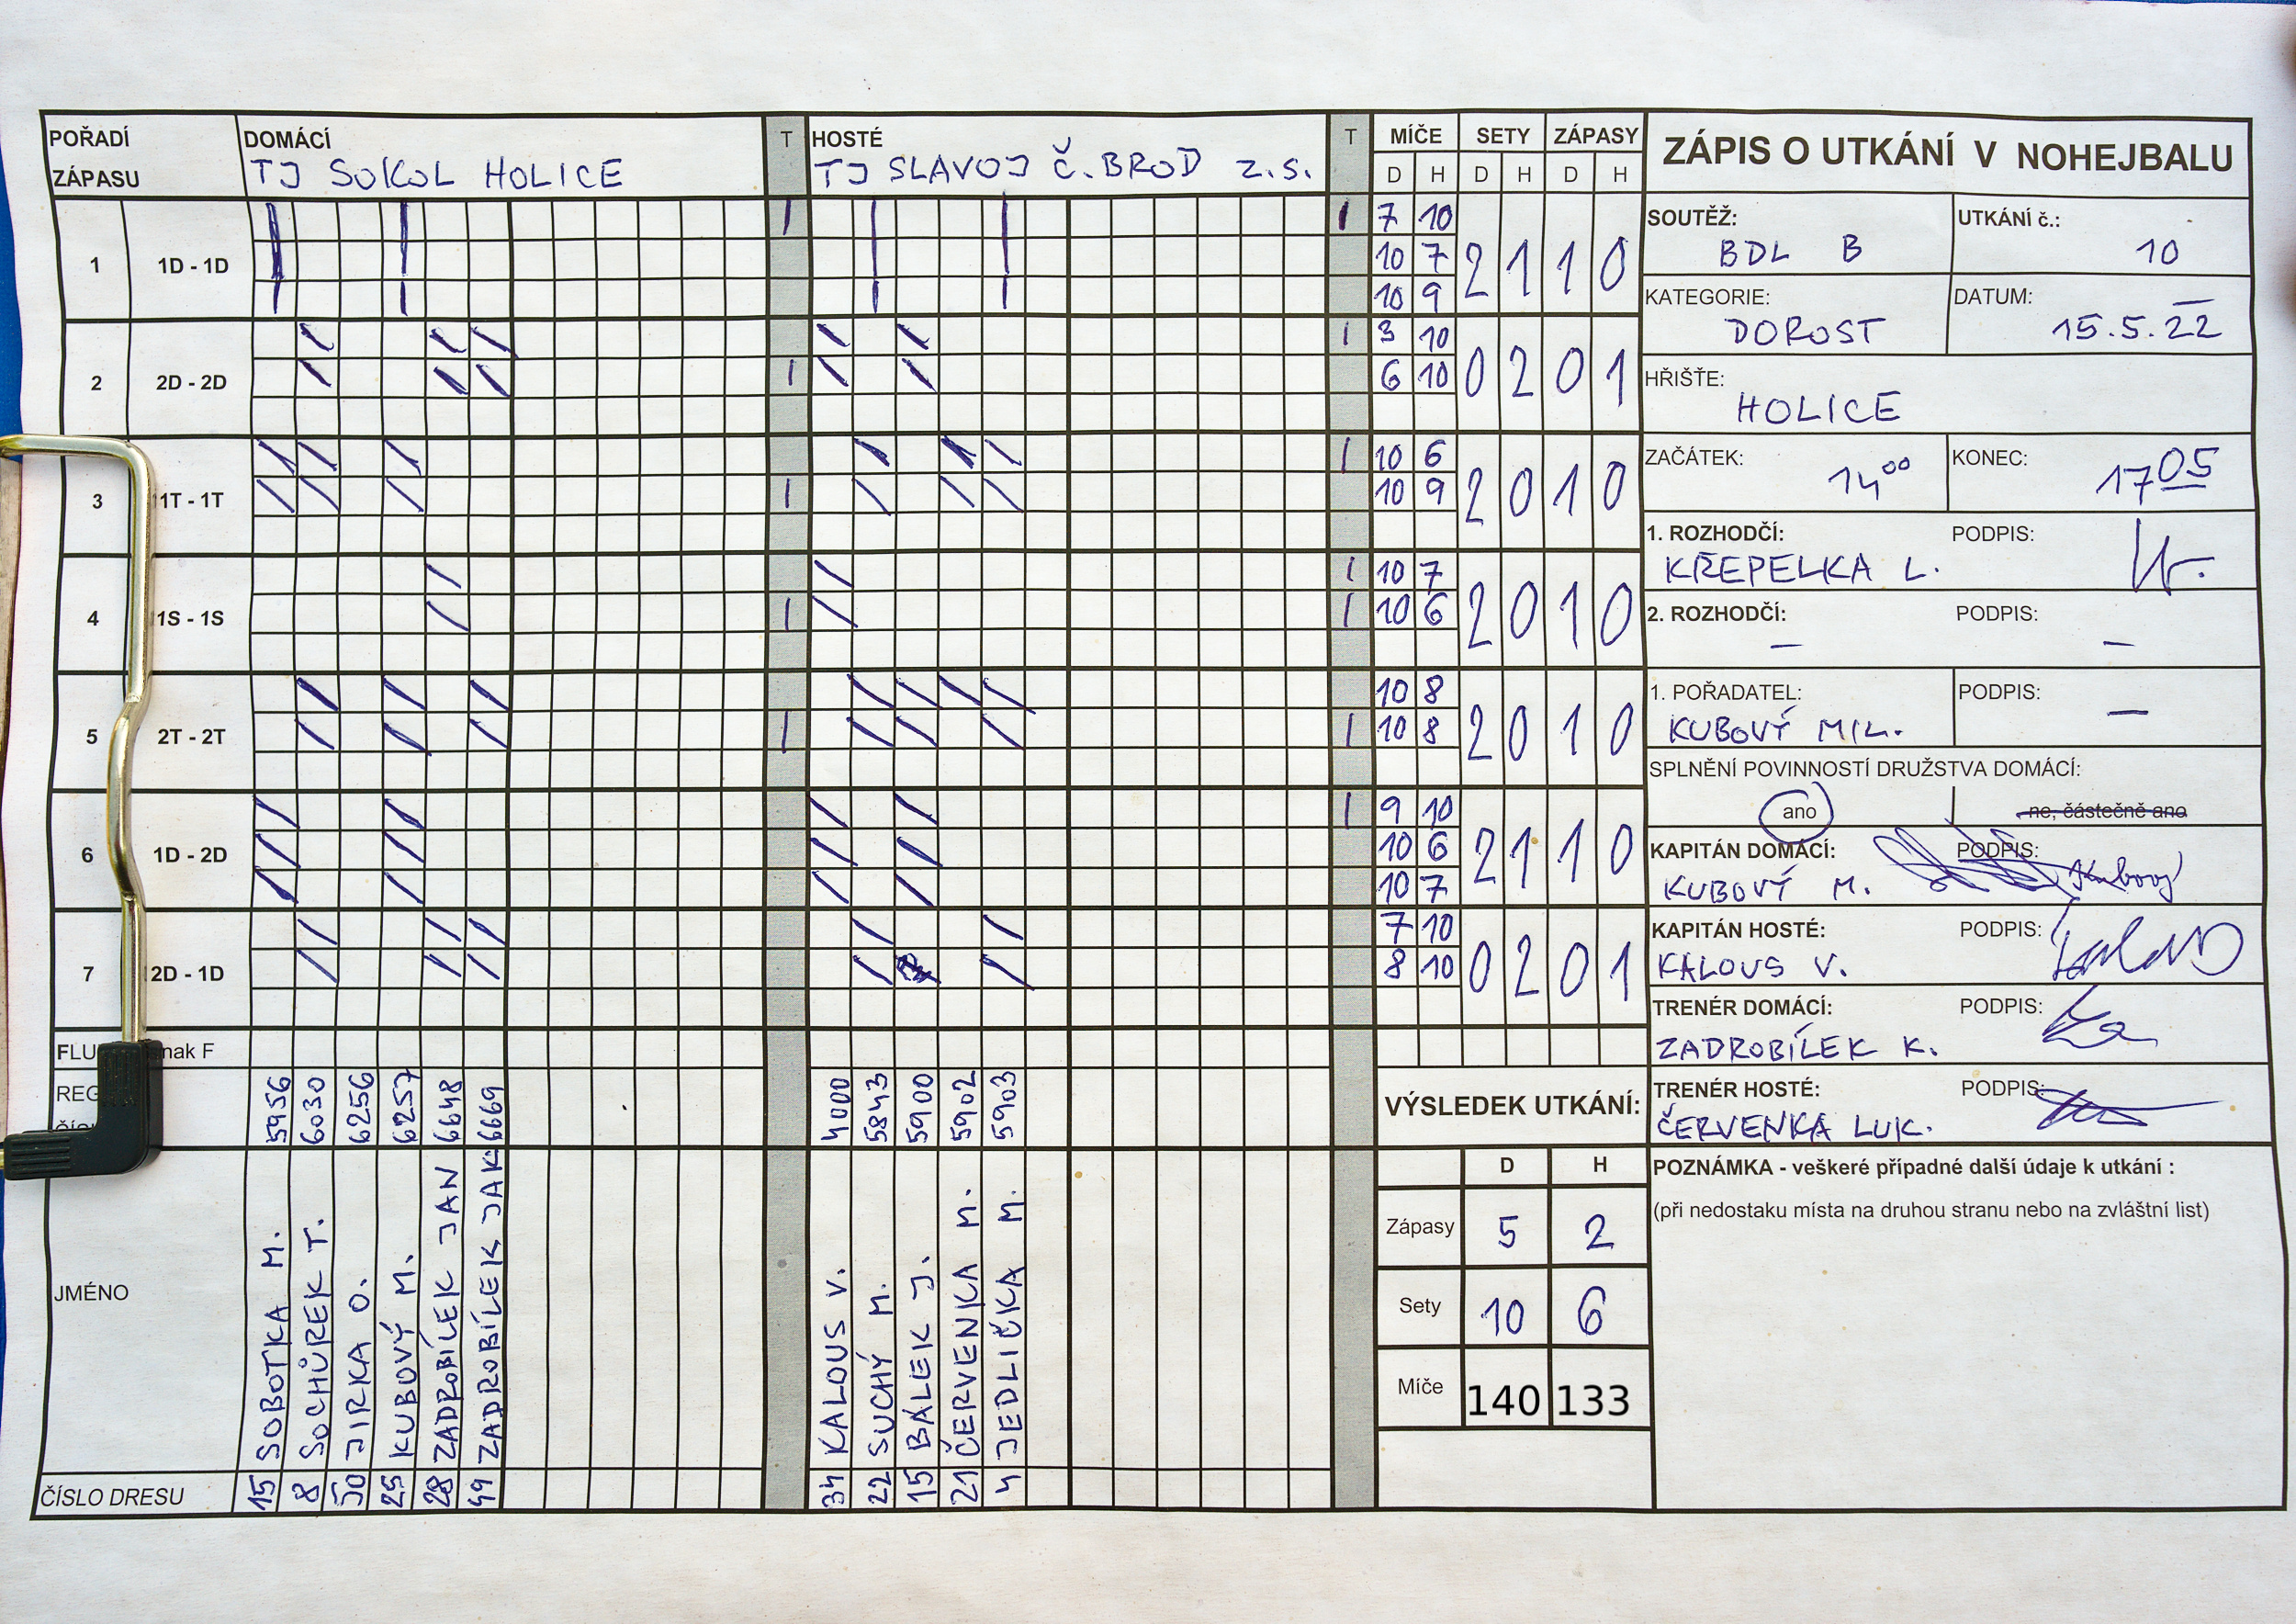 POŘADÍ ZÁPASU
DOMÁCÍ
TJ SOKOL HOLICE
T
HOSTÉ
TJ SLAVOJ Č. BROD z.s.
T
MÍČE SETY ZÁPASY
D H D H D H
1 1D - 1D
7 10
10 7
10 9
2 1 1 0
2 2D - 2D
3 10
6 10
0 2 0 1
3 1T - 1T
10 6
10 9
2 0 1 0
4 1S - 1S
10 7
10 6
2 0 1 0
5 2T - 2T
10 8
10 8
2 0 1 0
6 1D - 2D
9 10
10 6
10 7
2 1 1 0
7 2D - 1D
7 10
8 10
0 2 0 1
F
5956 6030 6256 6257 6648 6669
4000 5843 5900 5902 5903
JMÉNO
SOBOTKA M.
SOCHŮREK T.
JIRKA O.
KUBOVÝ M.
ZADROBÍLEK JAN
ZADROBÍLEK JAK.
KALOUS V.
SUCHÝ M.
BÁLEK J.
ČERVENKA M.
JEDLIČKA M.
ČÍSLO DRESU
15 8 50 25 28 49
34 22 15 21 4
ZÁPIS O UTKÁNÍ V NOHEJBALU
SOUTĚŽ: BDL B
UTKÁNÍ č.: 10
KATEGORIE: DOROST
DATUM: 15.5.22
HŘIŠTĚ: HOLICE
ZAČÁTEK: 14 00
KONEC: 17 05
1. ROZHODČÍ: PODPIS:
KŘEPELKA L.
2. ROZHODČÍ: PODPIS:
– –
1. POŘADATEL: PODPIS:
KUBOVÝ MIL. –
SPLNĚNÍ POVINNOSTÍ DRUŽSTVA DOMÁCÍ:
ano ne, částečně ano
KAPITÁN DOMÁCÍ: PODPIS:
KUBOVÝ M. Kubový
KAPITÁN HOSTÉ: PODPIS:
KALOUS V.
TRENÉR DOMÁCÍ: PODPIS:
ZADROBÍLEK K.
TRENÉR HOSTÉ: PODPIS:
ČERVENKA LUK.
VÝSLEDEK UTKÁNÍ:
D H
Zápasy 5 2
Sety 10 6
Míče 140 133
POZNÁMKA - veškeré případné další údaje k utkání :
(při nedostaku místa na druhou stranu nebo na zvláštní list)